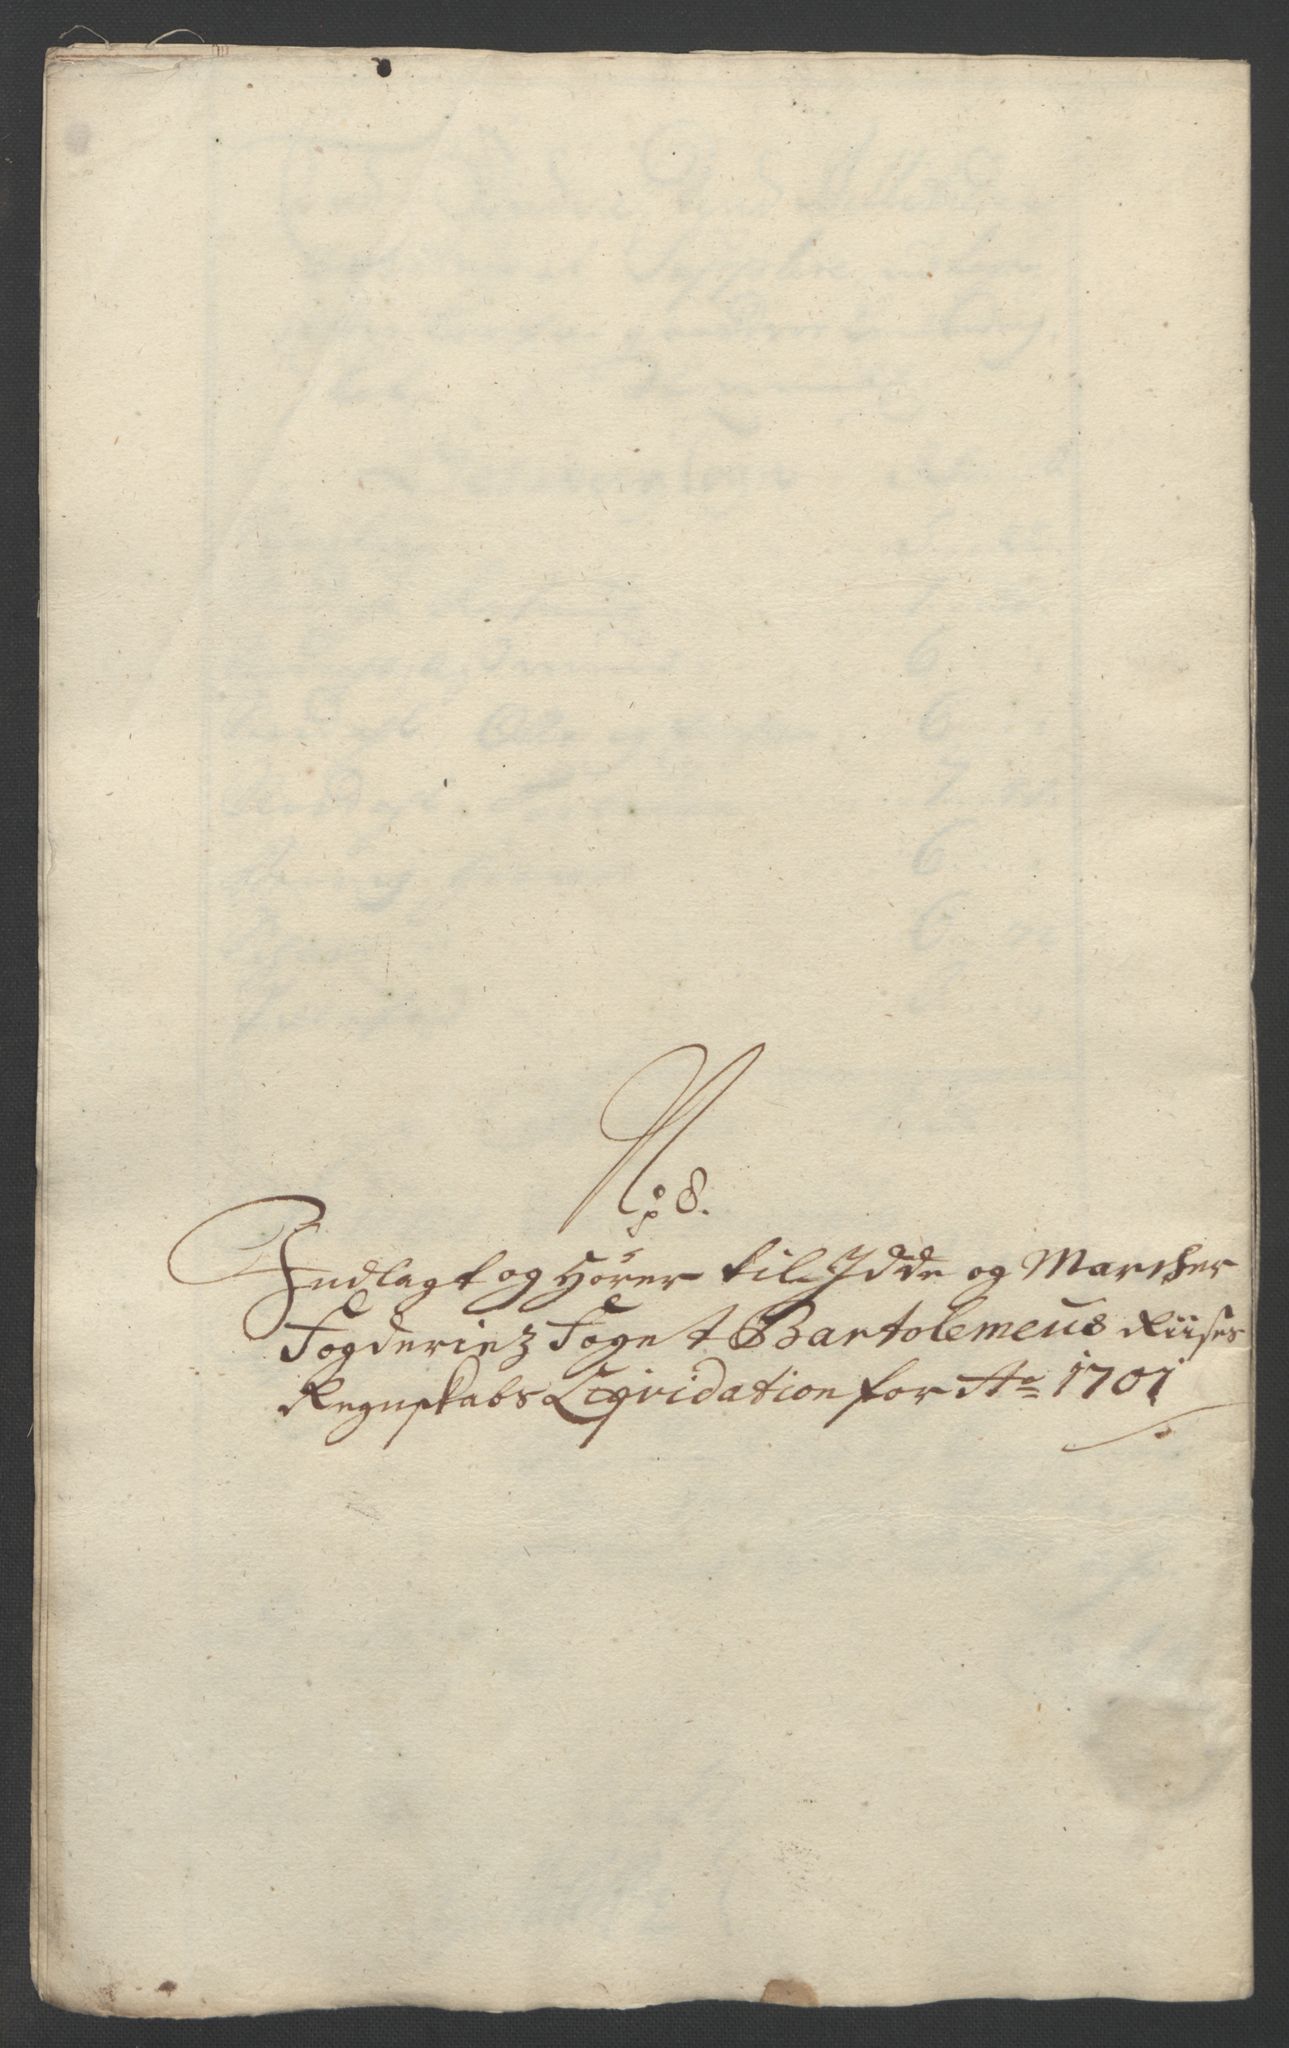 No 8.
Indlagt og Hører til Idde og Marcher
Fogderiez Foget Bartolemeus Riises
Regnskabs Liqvidation for Ao 1701